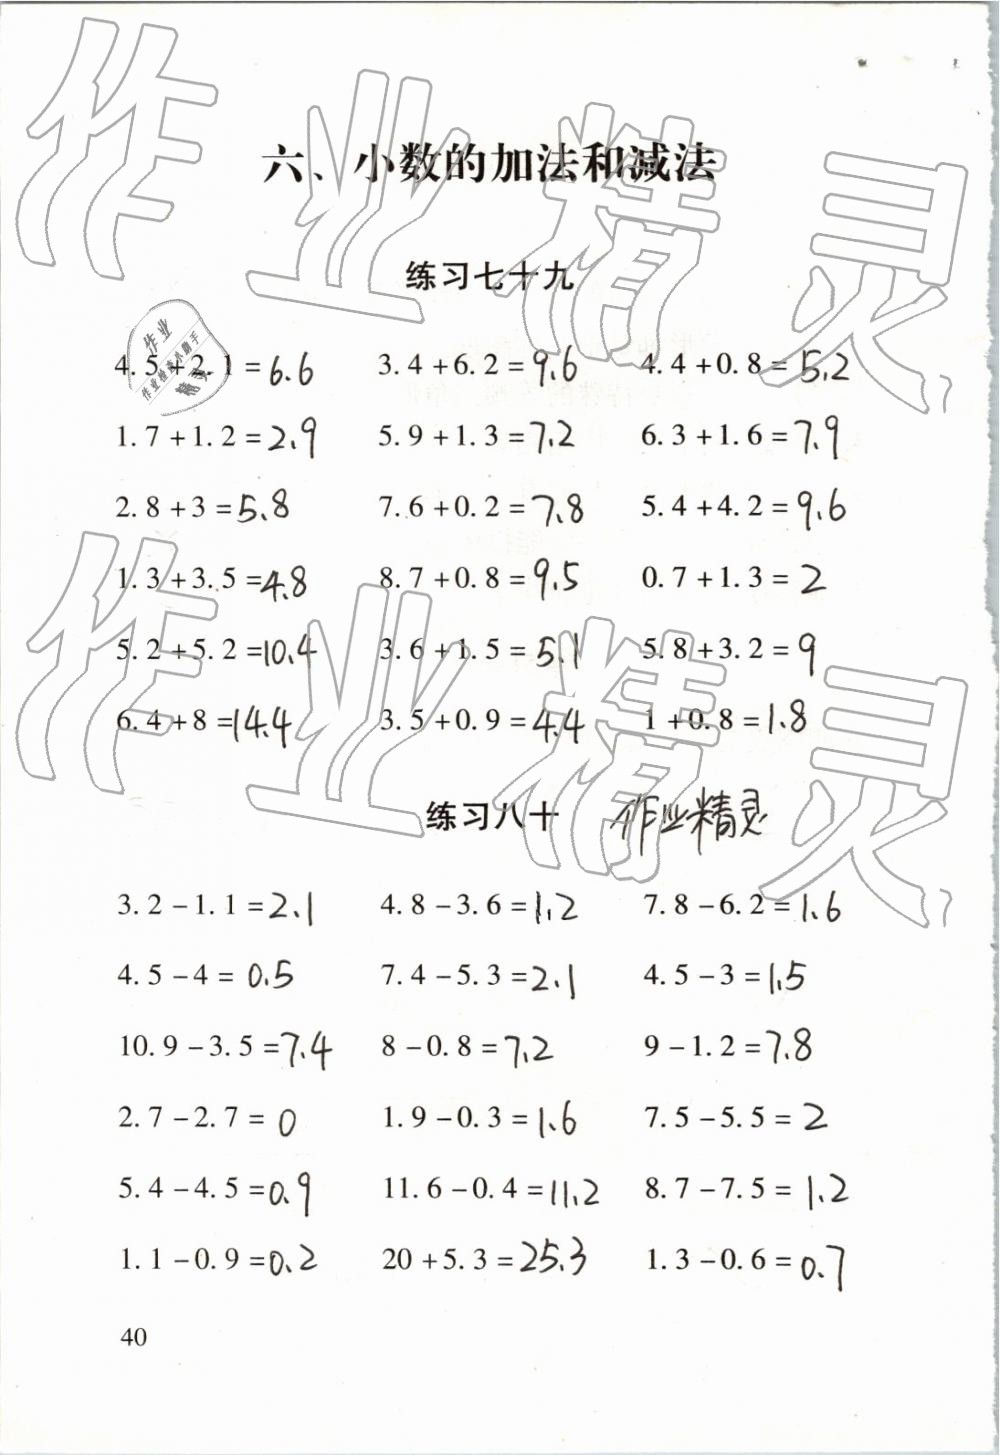 六、小数的加法和减法
练习七十九
4.5+2.1=6.6 3.4+6.2=9.6 4.4+0.8=5.2
1.7+1.2=2.9 5.9+1.3=7.2 6.3+1.6=7.9
2.8+3=5.8 7.6+0.2=7.8 5.4+4.2=9.6
1.3+3.5=4.8 8.7+0.8=9.5 0.7+1.3=2
5.2+5.2=10.4 3.6+1.5=5.1 5.8+3.2=9
6.4+8=14.4 3.5+0.9=4.4 1+0.8=1.8
练习八十 作业精灵
3.2-1.1=2.1 4.8-3.6=1.2 7.8-6.2=1.6
4.5-4=0.5 7.4-5.3=2.1 4.5-3=1.5
10.9-3.5=7.4 8-0.8=7.2 9-1.2=7.8
2.7-2.7=0 1.9-0.3=1.6 7.5-5.5=2
5.4-4.5=0.9 11.6-0.4=11.2 8.7-7.5=1.2
1.1-0.9=0.2 20+5.3=25.3 1.3-0.6=0.7
40
作业精灵
作业精灵
作业
作业检查小助手
精灵